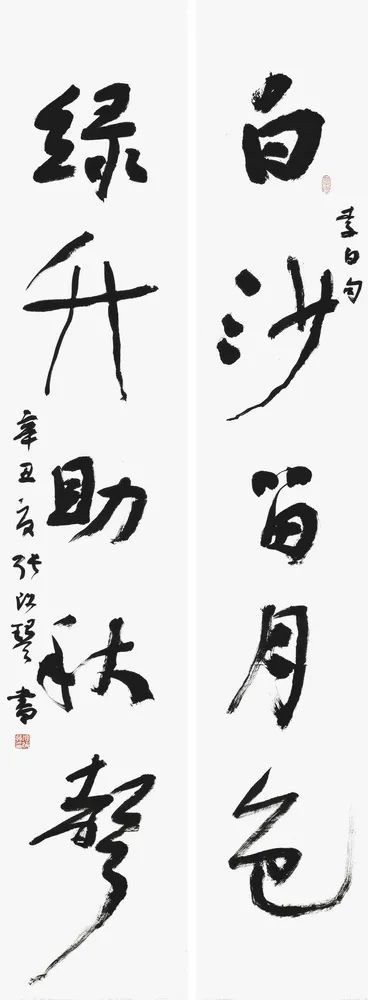 白沙留月色
李白句
绿竹助秋聲
辛丑夏张改琴書